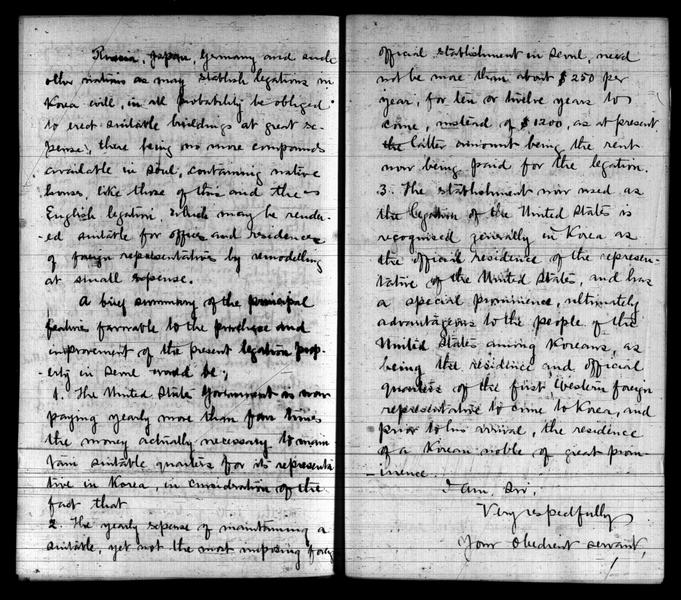 Russia, Japan, Germany and such
other nations as may establish legations in
Korea will, in all probability be obliged
to erect suitable buildings at great ex-
pense, there being no more compounds
available in Soul, containing native
houses, like those of this and the
English legation, which may be render-
-ed suitable for offices and residences
of foreign representatives by remodelling
at small expense.
A brief summary of the principal
features favorable to the purchase and
improvement of the present legation prop-
erty in Seoul would be;
1. The United States Government is now
paying yearly more than four times
the money actually necessary to main
tain suitable quarters for its representa
tive in Korea, in consideration of the
fact that
2. The yearly expense of maintaining a
suitable, yet not the most imposing foreign
official establishment in Seoul, need
not be more than about $250 per
year, for ten or twelve years to
come, instead of $1200, as at present
the latter amount being the rent
now being paid for the legation.
3. The establishment now used as
the legation of the United States is
recognised generally in Korea as
the official residence of the represen-
tative of the United States, and has
a special prominence, ultimately
advantageous to the people of the
United States among Koreans, as
being the residence and official
quarters of the first Western foreign
representative to come to Korea, and
prior to his arrival, the residence
of a Korean noble of great prom-
-inence.
I am, Sir,
Very respectfully
Your obedient servant,